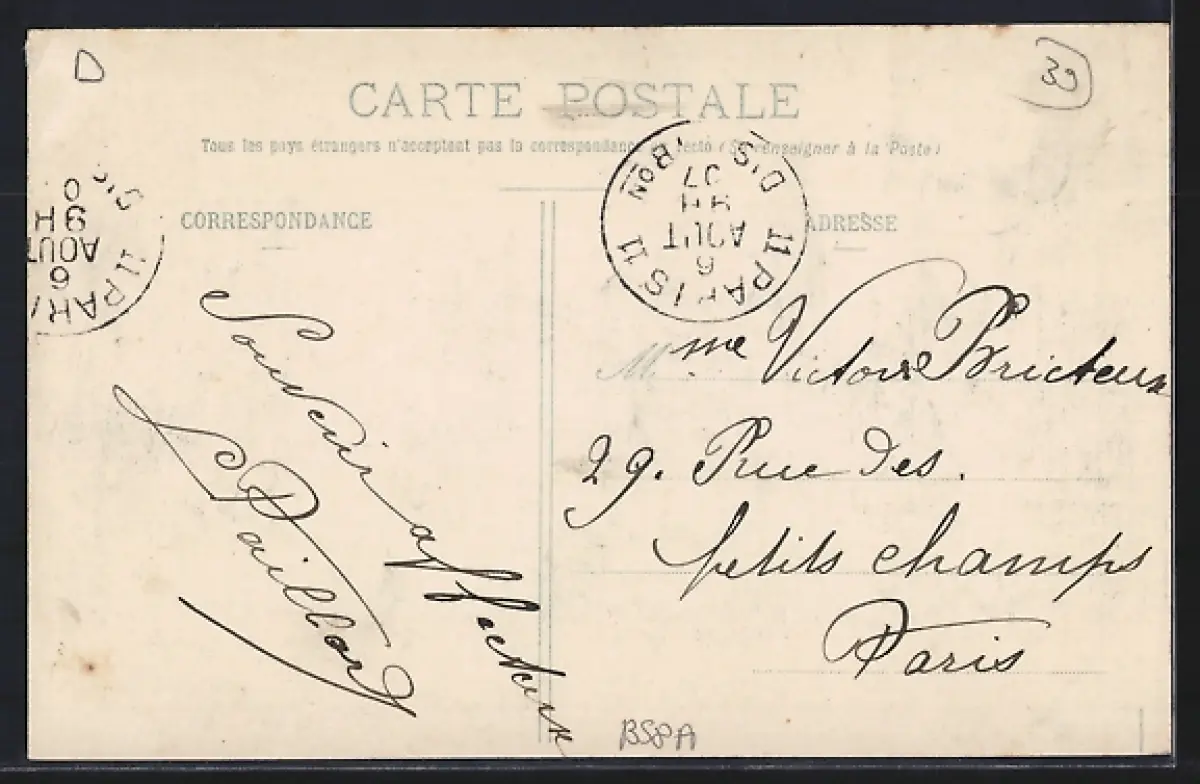 D
39
CARTE POSTALE
Tous les pays étrangers n'acceptent pas la correspondance au recto (Se renseigner à la Poste)
CORRESPONDANCE
ADRESSE
11 PARIS 11
6
AOUT
9H
07
DIS BON
11 PARI
6
AOUT
9H
0
DIS
Souvenir affectueux
Paillard
Mme Victor Bricteux
29. Rue des.
petits champs
Paris
BS8A